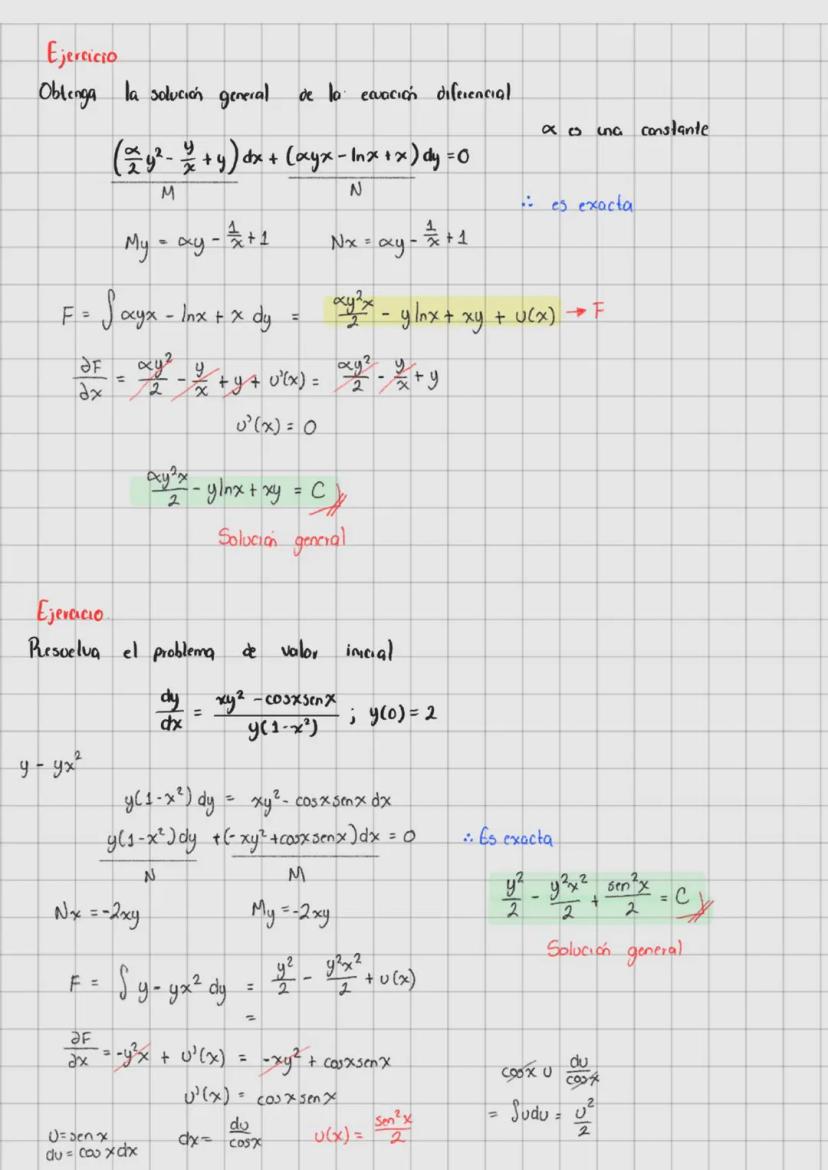 Ejercicio
Obtenga la solución general de la ecuación diferencial
α es una constante
(α/2 y² - y/x + y) dx + (αyx - lnx + x) dy = 0
M N
∴ es exacta
My = αy - 1/x + 1 Nx = αy - 1/x + 1
F = ∫ αyx - lnx + x dy = αy²x/2 - ylnx + xy + υ(x) → F
∂F/∂x = αy²/2 - y/x + y + υ'(x) = αy²/2 - y/x + y
υ'(x) = 0
αy²x/2 - ylnx + xy = C
Solución general
Ejercicio
Resuelva el problema de valor inicial
dy/dx = xy² - cosxsenx / y(1-x²) ; y(0) = 2
y - yx²
y(1-x²) dy = xy² - cosxsenx dx
y(1-x²) dy + (-xy² + cosxsenx) dx = 0 ∴ Es exacta
N M
y²/2 - y²x²/2 + sen²x/2 = C
Nx = -2xy My = -2xy
Solución general
F = ∫ y - yx² dy = y²/2 - y²x²/2 + υ(x)
=
∂F/∂x = -y²x + υ'(x) = -xy² + cosxsenx
cosx υ du/cosx
υ'(x) = cosxsenx
= ∫udu = υ²/2
υ = senx dx = du/cosx υ(x) = sen²x/2
du = cosxdx